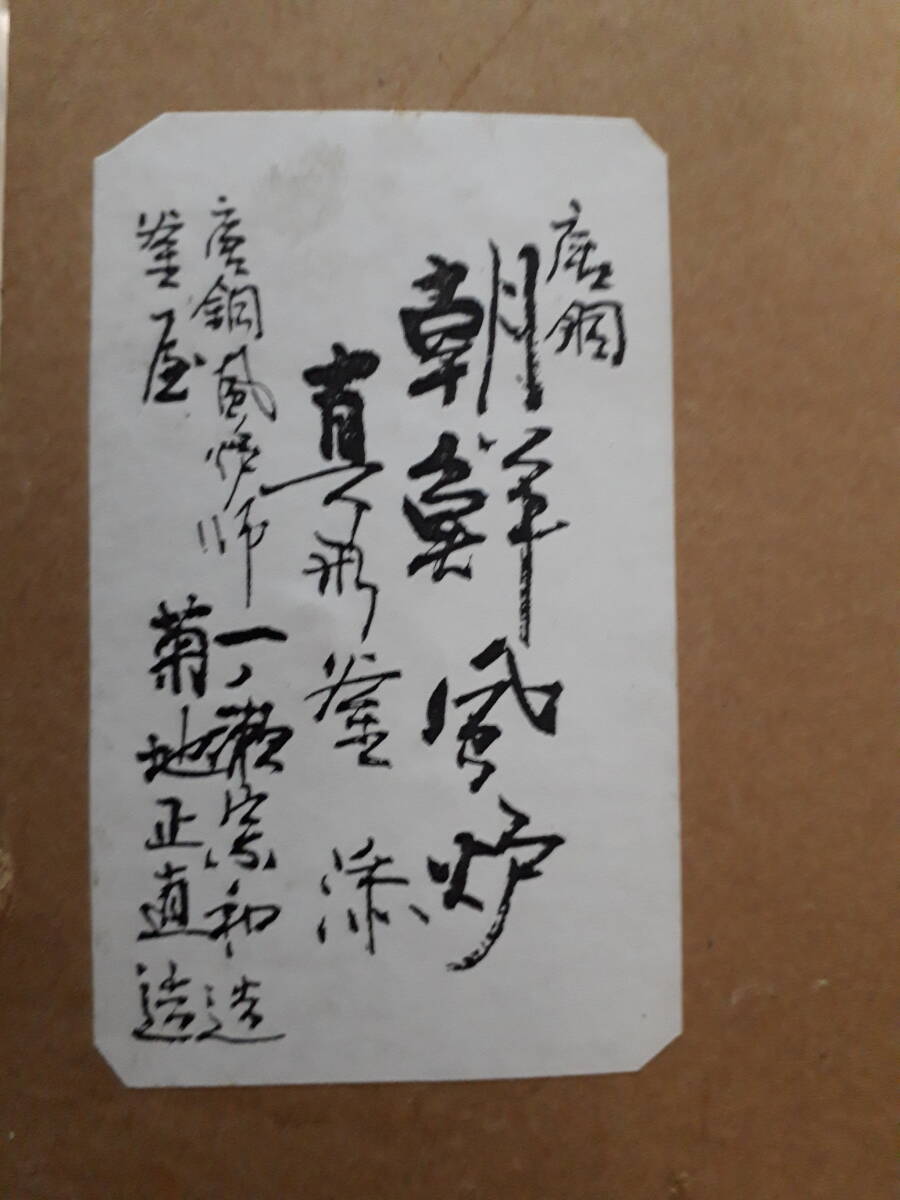 唐銅
朝鮮風炉
真形釜 添
唐銅風炉師 一ノ瀬宗和造
釜屋 菊地正直造